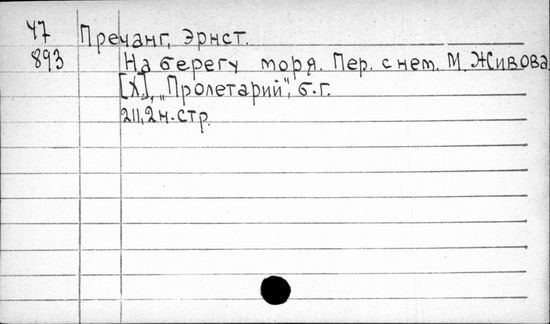 47 Пречанг, Эрнст.
893 На берегу моря. Пер. с нем. М. Живова
[Х.], „Пролетарий", б.г.
211, 2 н. стр.